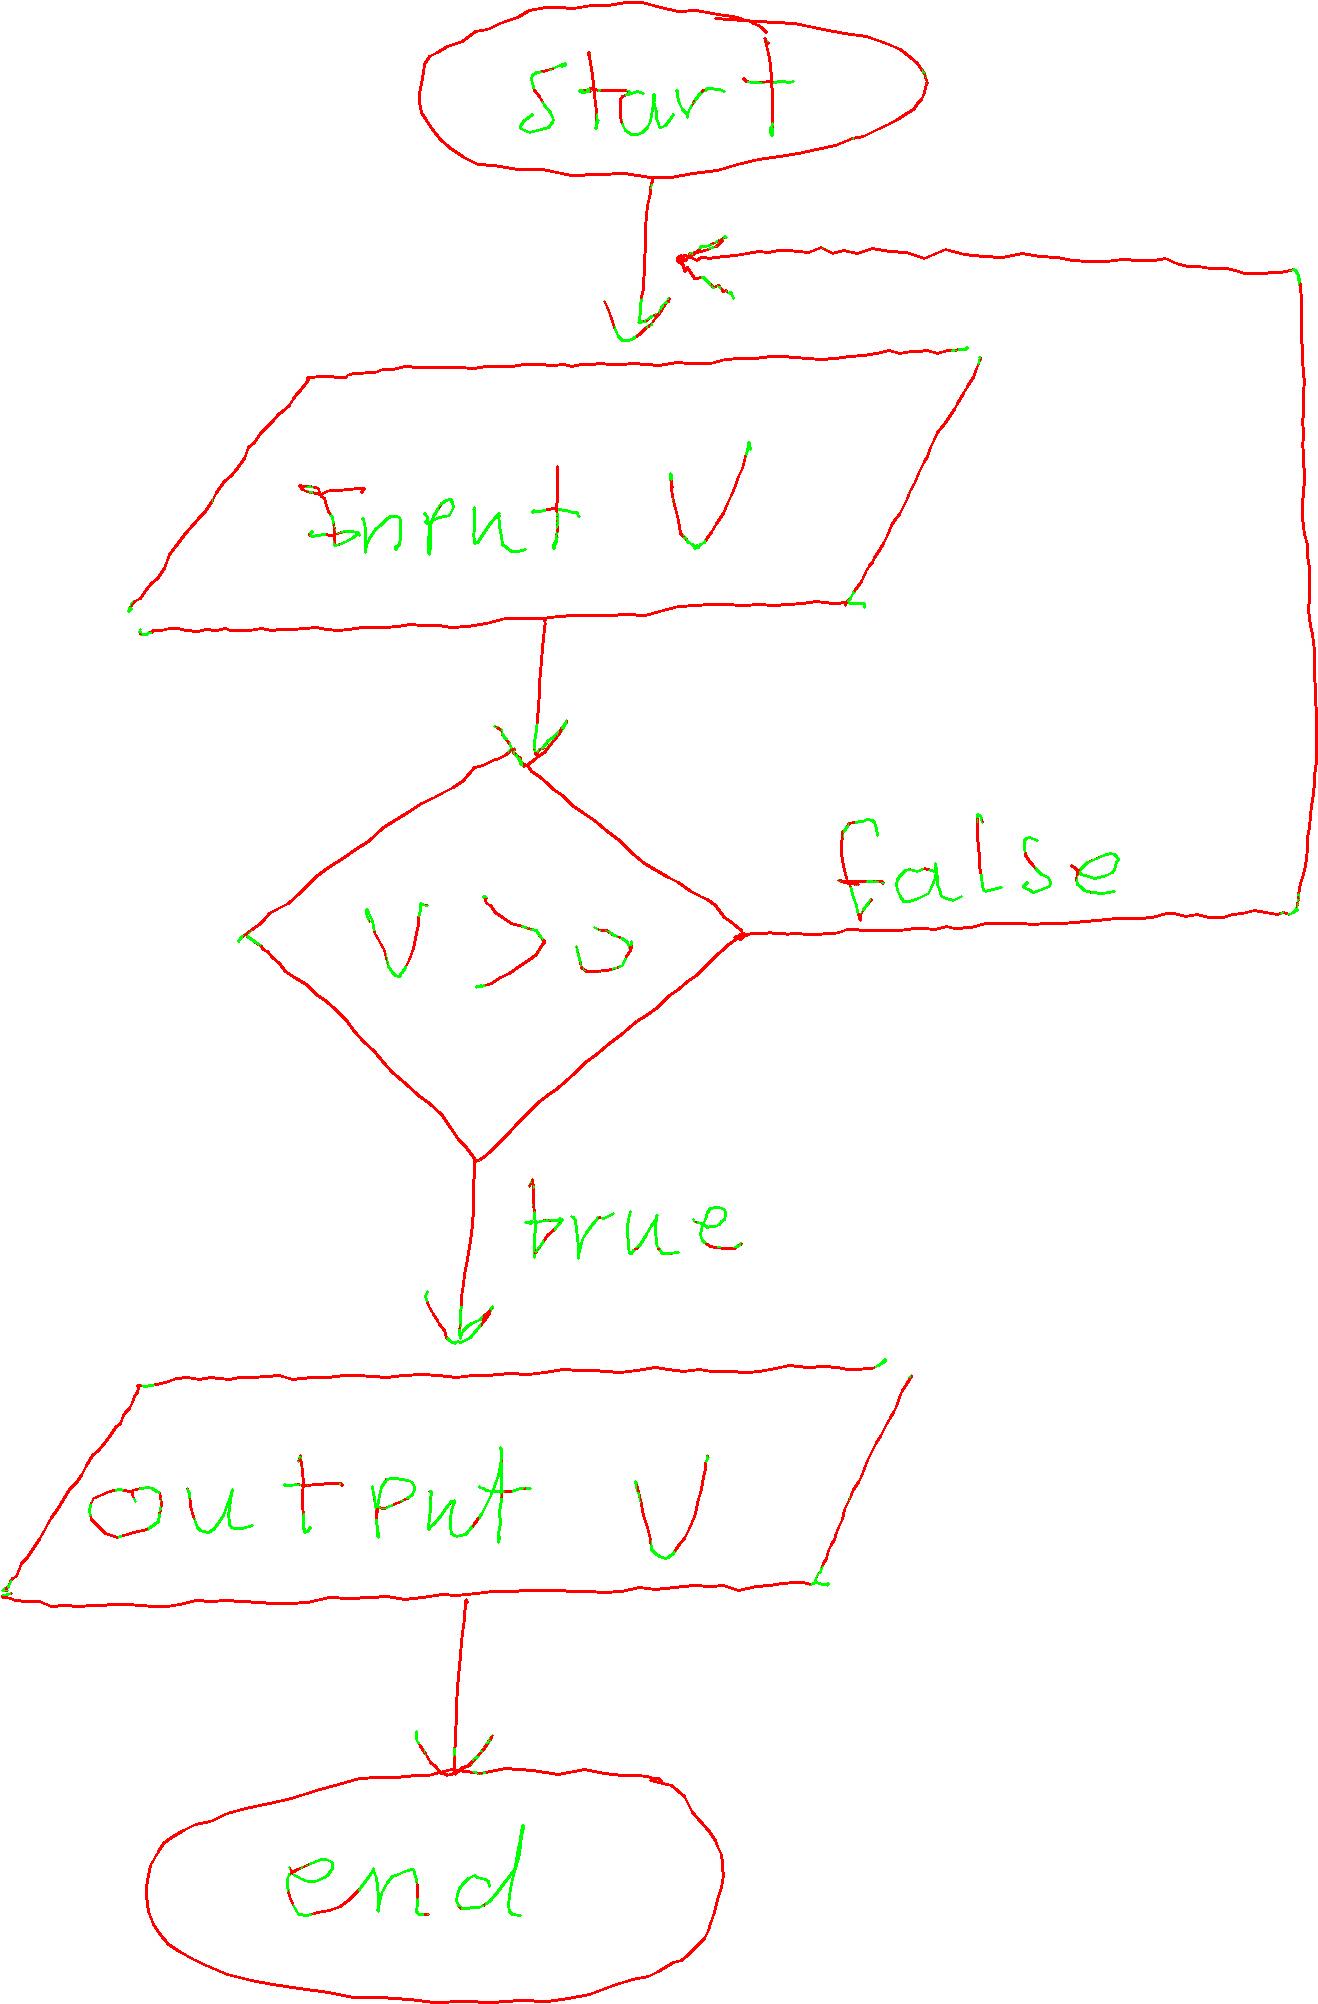 start
Input V
V > 0
false
true
output V
end